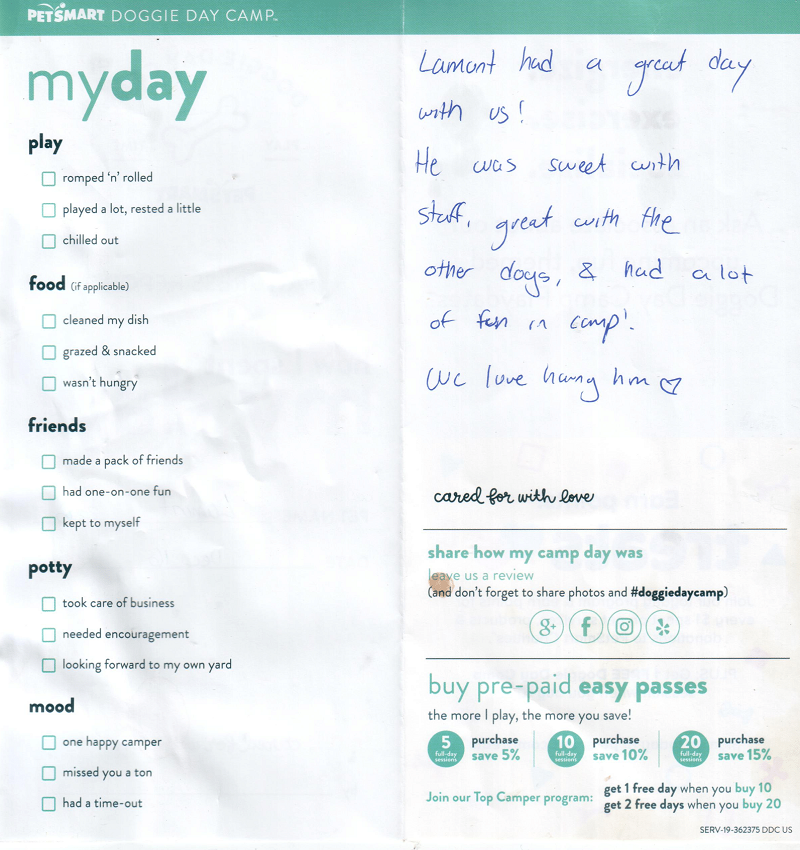 PETSMART DOGGIE DAY CAMP™
myday
play
romped 'n' rolled
played a lot, rested a little
chilled out
food (if applicable)
cleaned my dish
grazed & snacked
wasn't hungry
friends
made a pack of friends
had one-on-one fun
kept to myself
potty
took care of business
needed encouragement
looking forward to my own yard
mood
one happy camper
missed you a ton
had a time-out
Lamont had a great day
with us!
He was sweet with
staff, great with the
other dogs, & had a lot
of fun in camp!
We love having him ♡
cared for with love
share how my camp day was
leave us a review
(and don't forget to share photos and #doggiedaycamp)
g+ f
buy pre-paid easy passes
the more I play, the more you save!
5 full-day sessions purchase save 5%
10 full-day sessions purchase save 10%
20 full-day sessions purchase save 15%
Join our Top Camper program: get 1 free day when you buy 10
get 2 free days when you buy 20
SERV-19-362375 DDC US